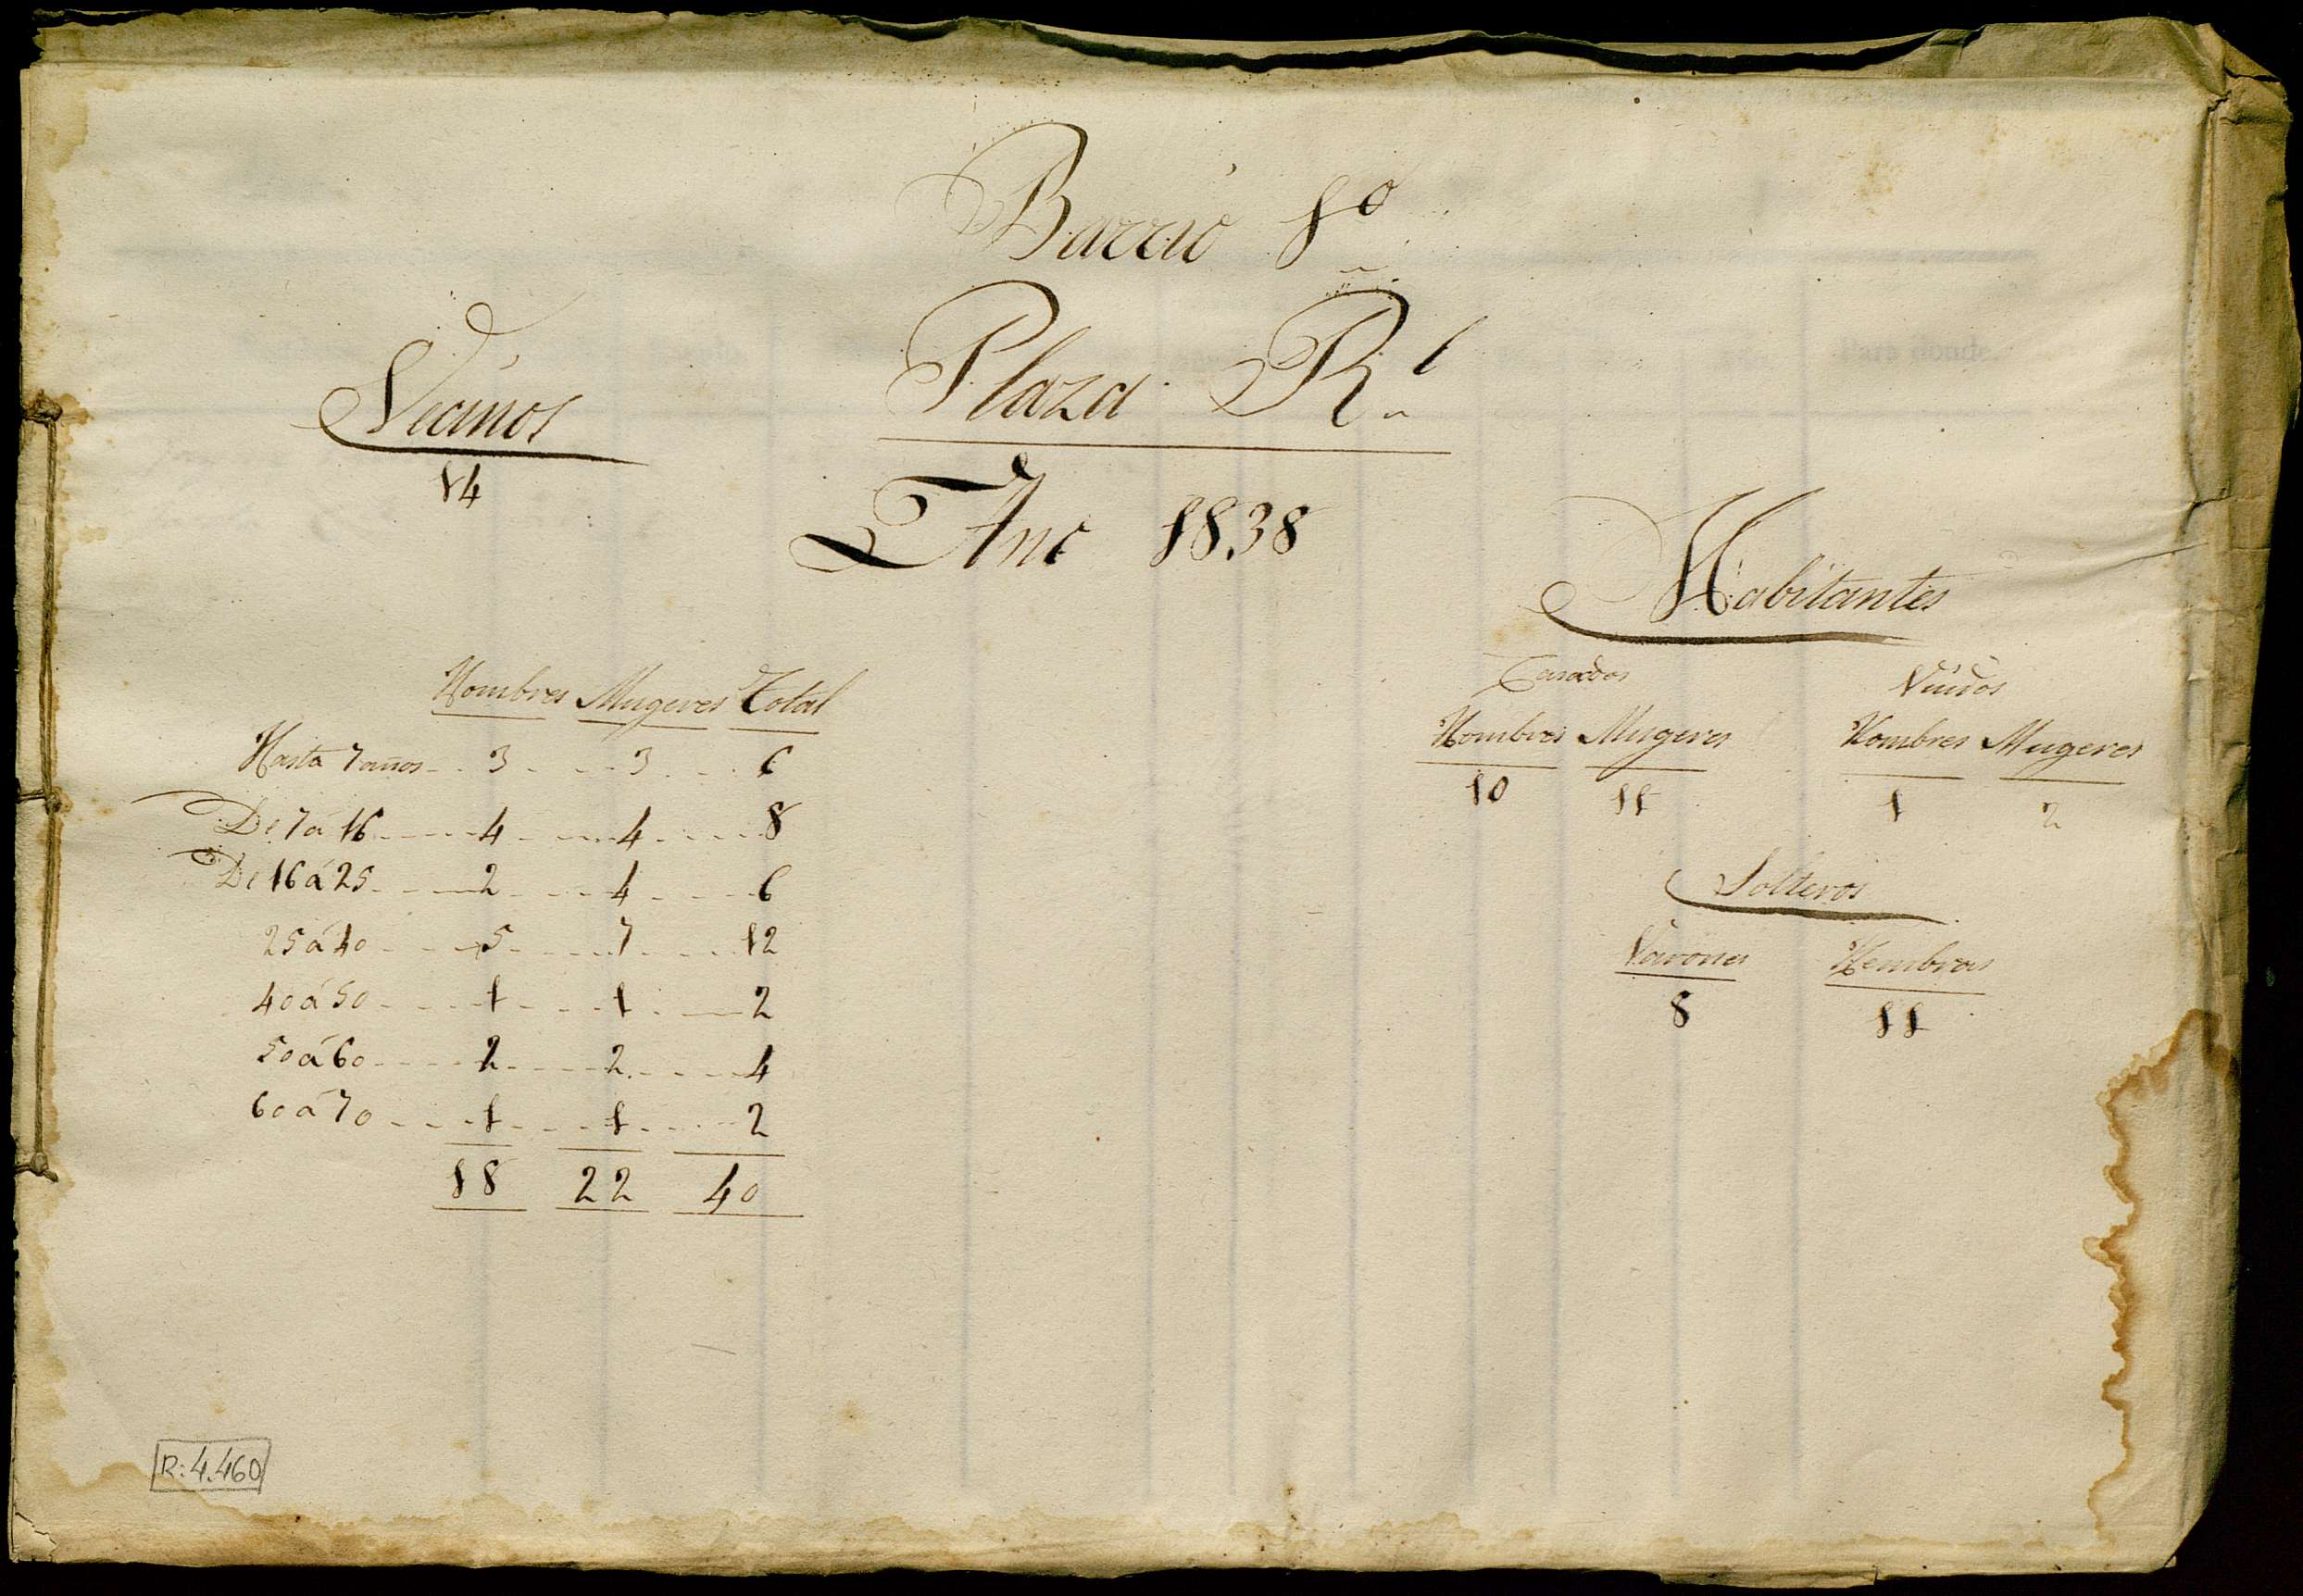 Barrio 1º
Plaza R.l
Vecinos
14
Año 1838
Habitantes
Hombres Mugeres Total
Hasta 7 años 3 3 6
De 7 á 16 4 4 8
De 16 á 25 2 4 6
25 á 40 5 7 12
40 á 50 1 1 2
50 á 60 2 2 4
60 á 70 1 1 2
18 22 40
Casados Viudos
Hombres Mugeres Hombres Mugeres
10 11 1 2
Solteros
Varones Hembras
8 11
R: 4.460
Para donde.